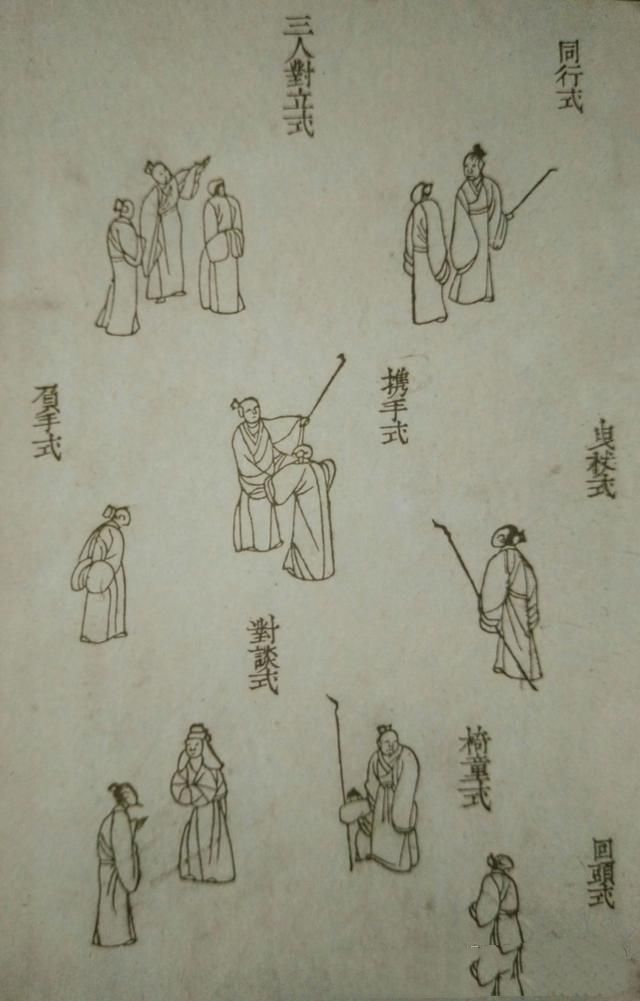 同行式
三人對立式
曳杖式
攜手式
負手式
回頭式
椅童式
對談式